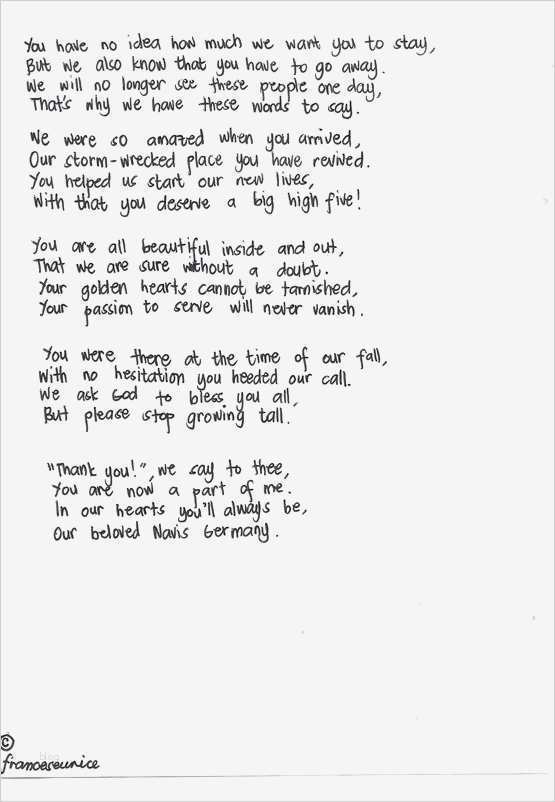 You have no idea how much we want you to stay,
But we also know that you have to go away.
We will no longer see these people one day,
That's why we have these words to say.
We were so amazed when you arrived,
Our storm-wrecked place you have revived.
You helped us start our new lives,
With that you deserve a big high five!
You are all beautiful inside and out,
That we are sure without a doubt.
Your golden hearts cannot be tarnished,
Your passion to serve will never vanish.
You were there at the time of our fall,
With no hesitation you heeded our call.
We ask God to bless you all,
But please stop growing tall.
"Thank you!", we say to thee,
You are now a part of me.
In our hearts you'll always be,
Our beloved Navis Germany.
©
franceseunice